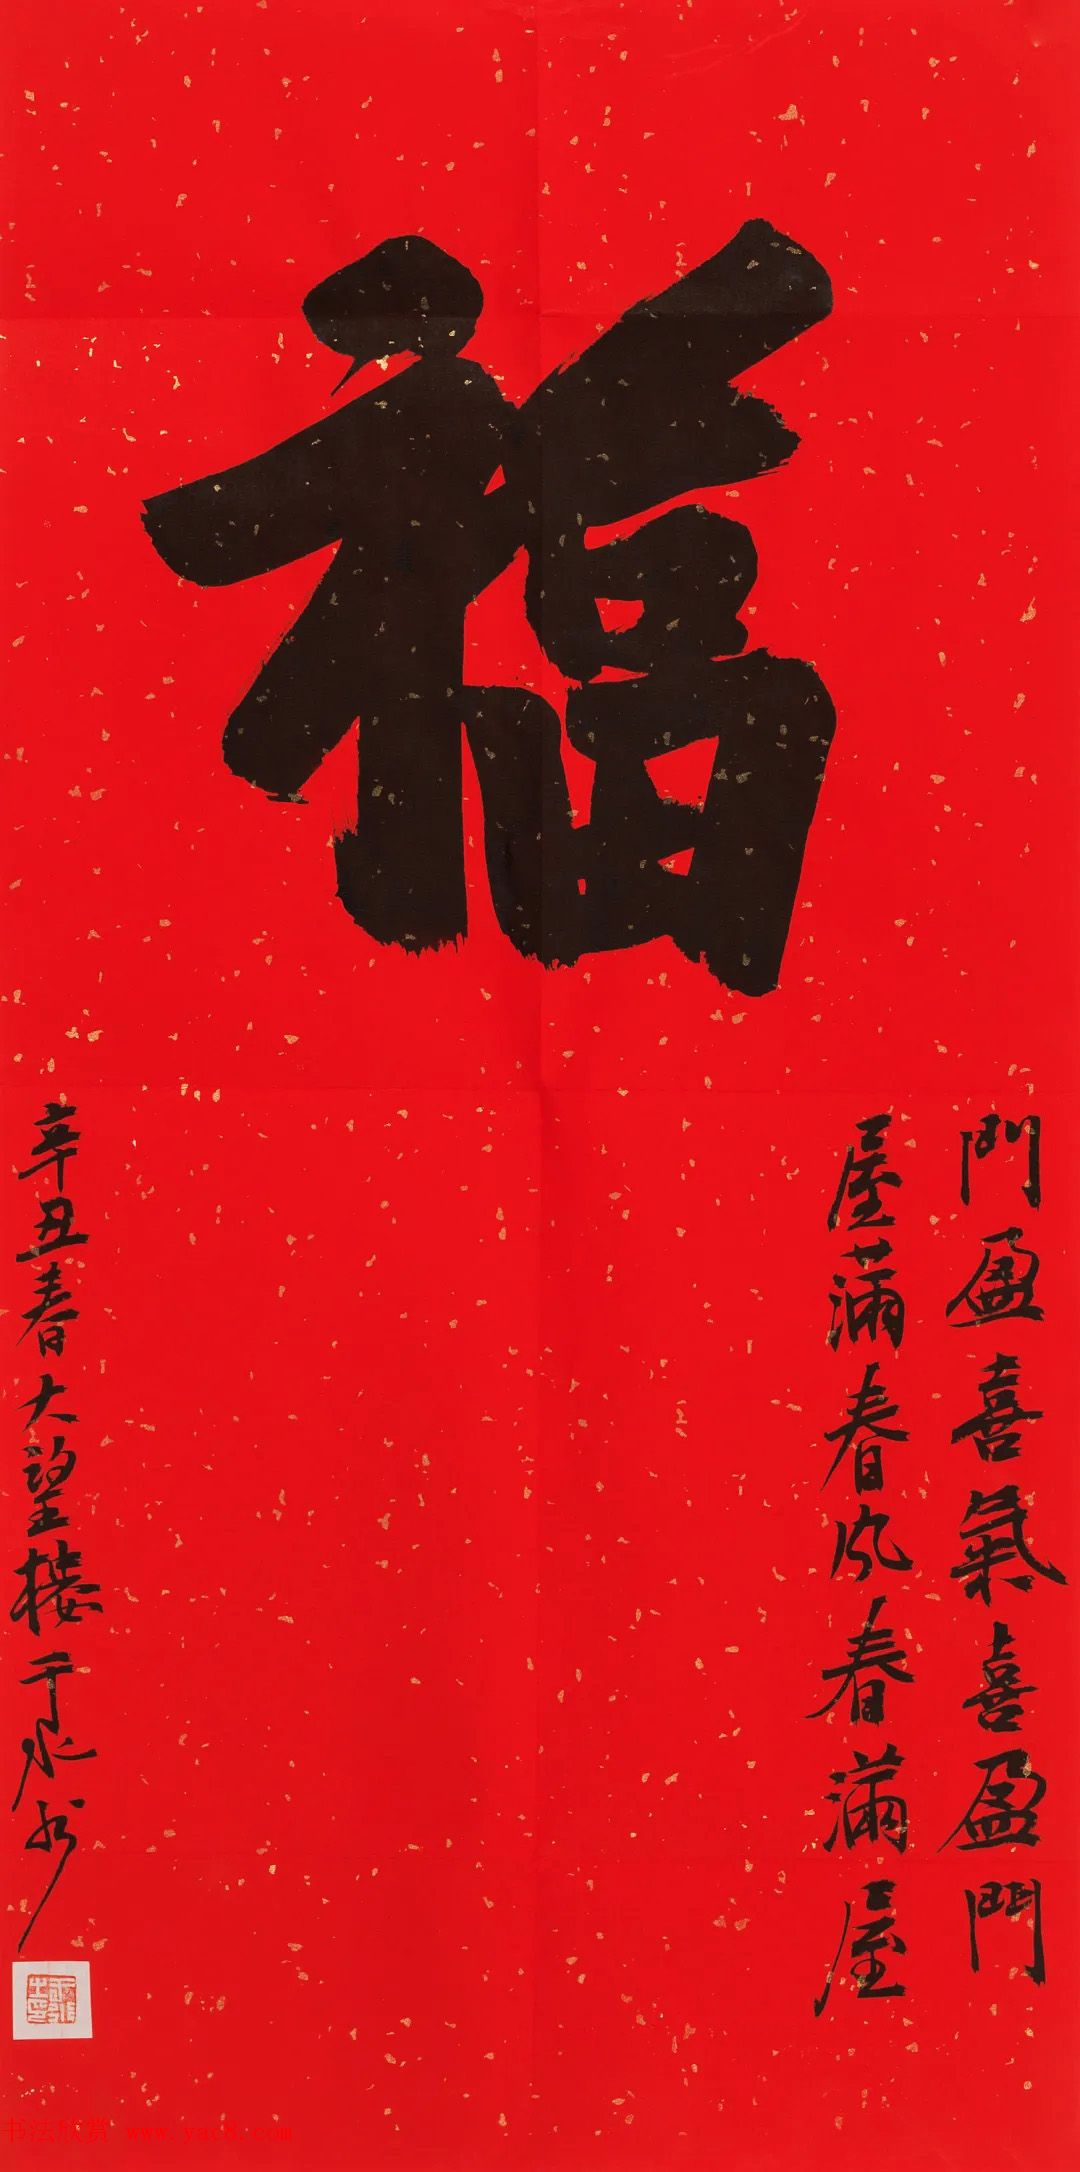 福
門盈喜氣喜盈門
屋滿春風春滿屋
辛丑春大望樓于水
书法欣赏 www.yac8.com